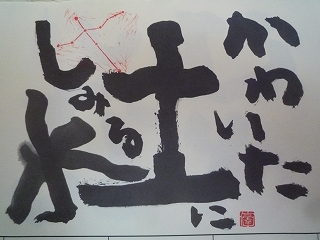 かわいた
土に
しみる
水